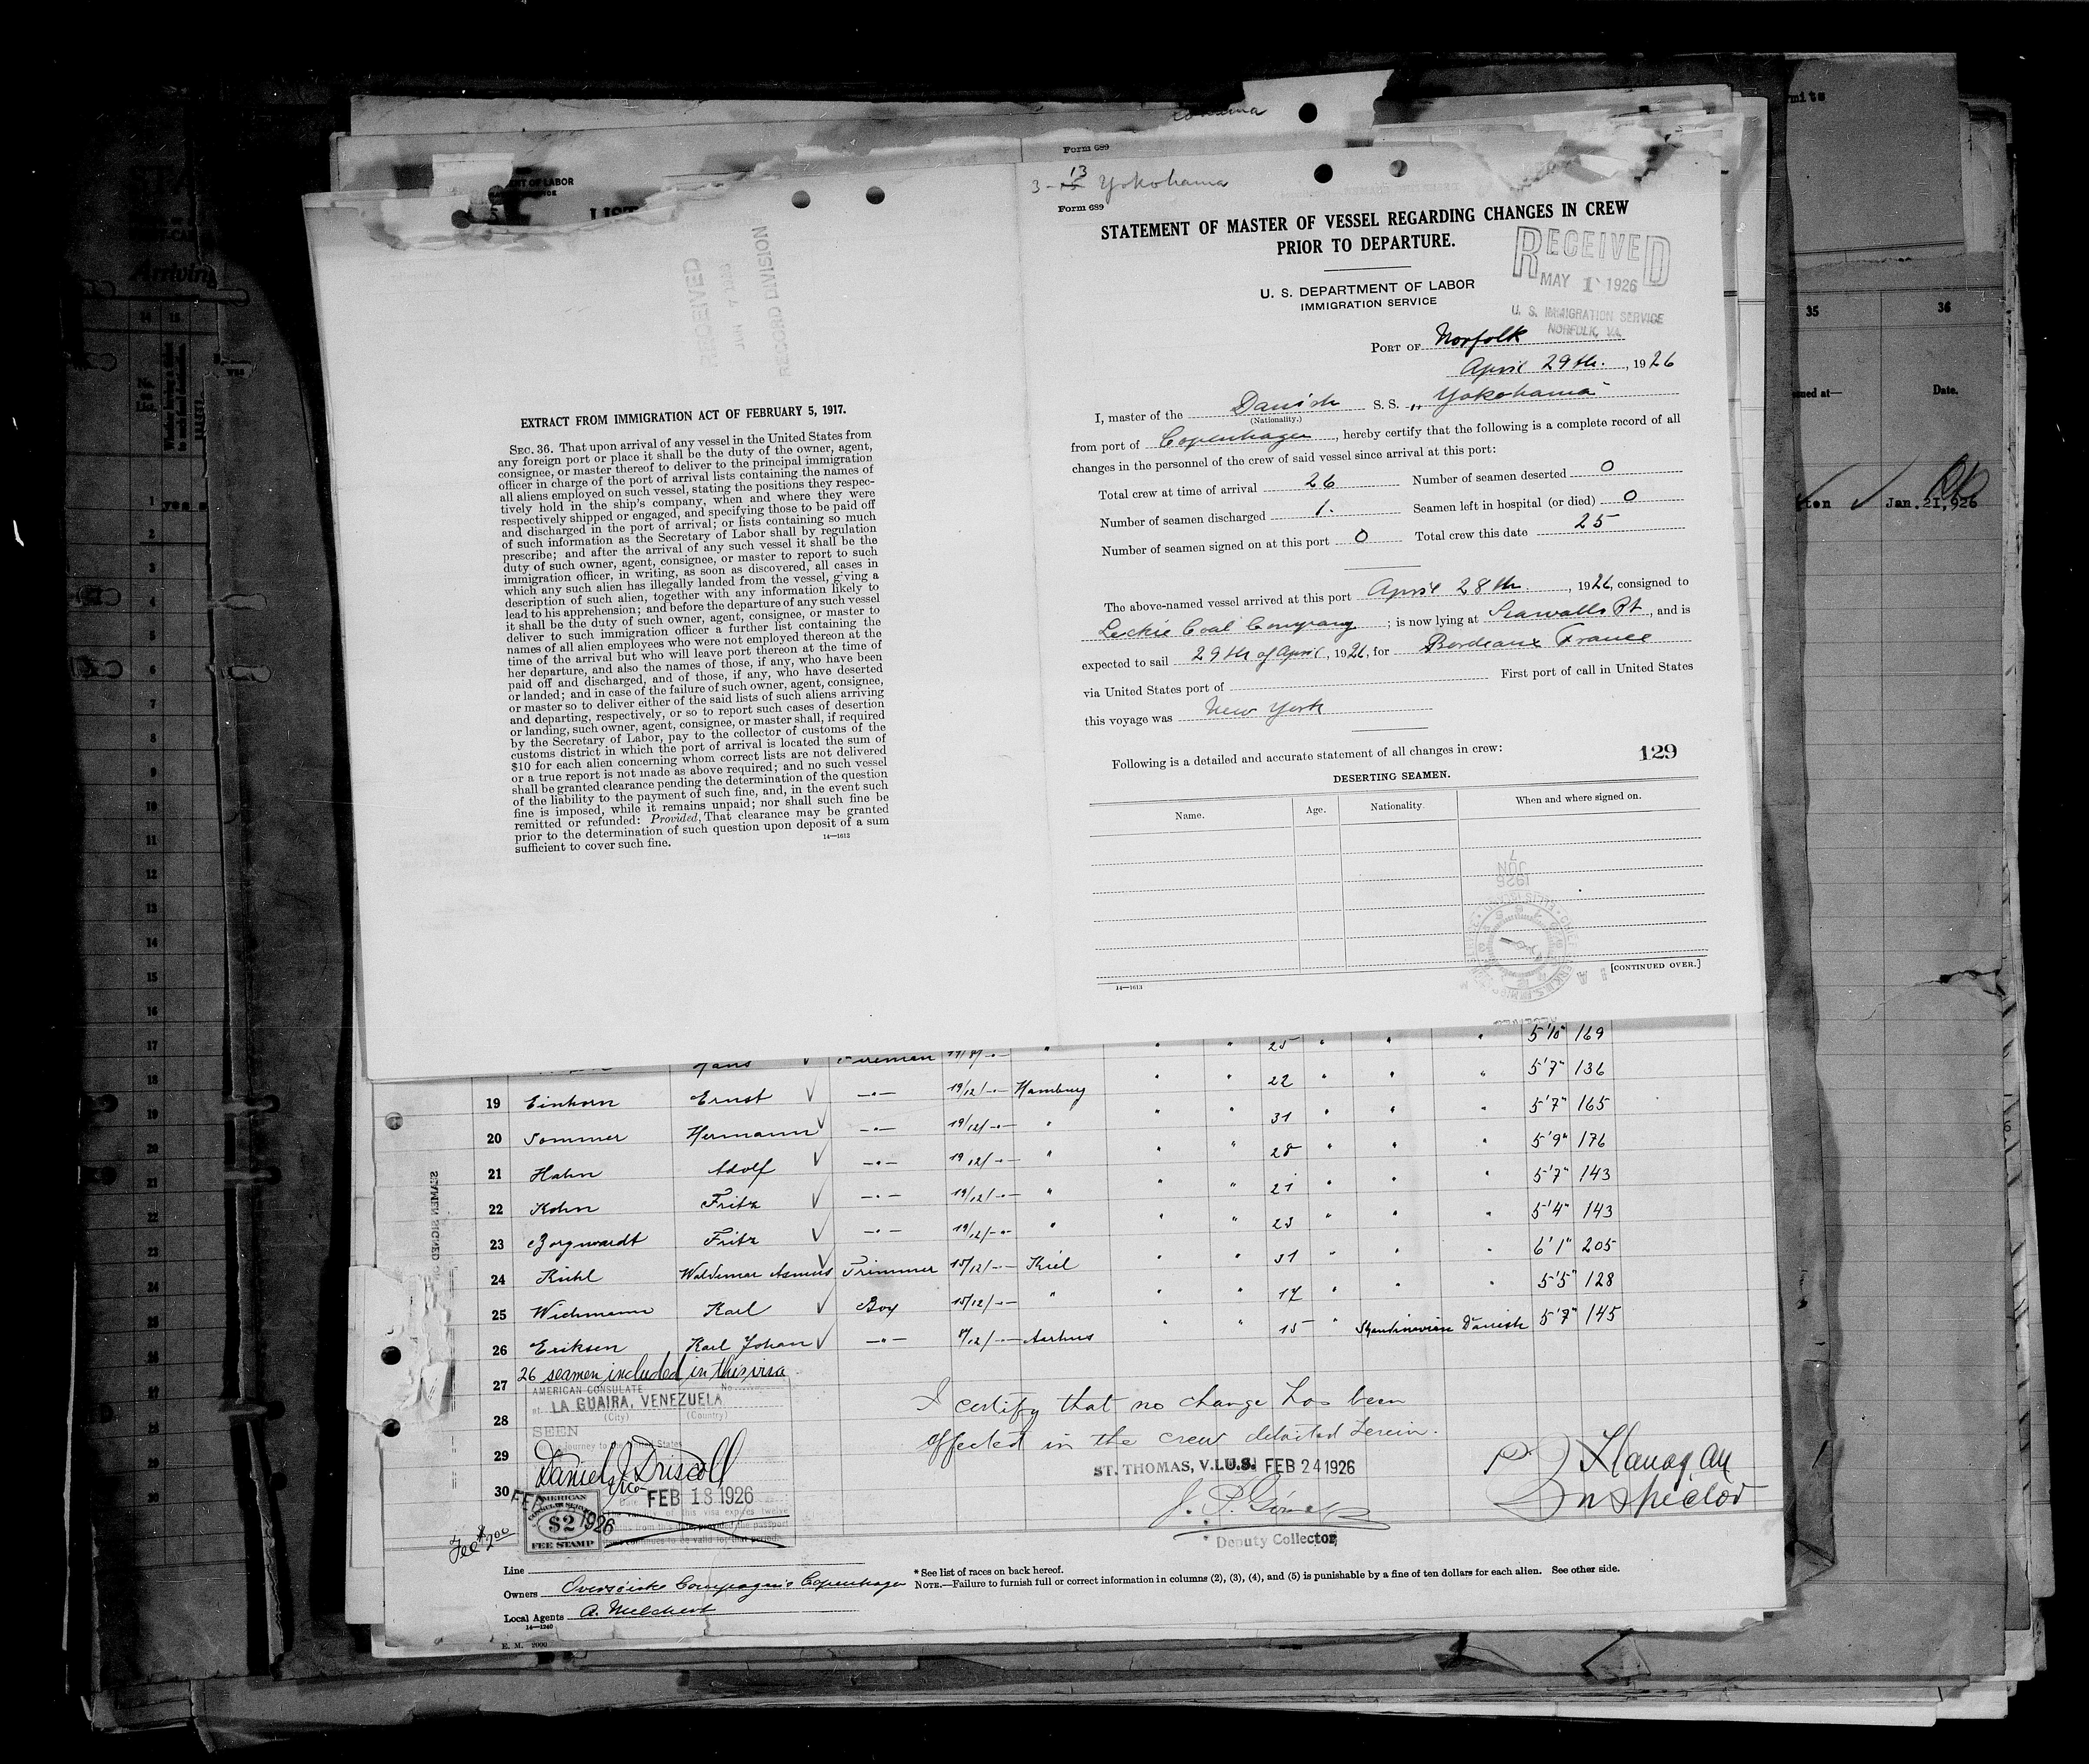 Form 689
3 - 13 Yokohama
Form 689
STATEMENT OF MASTER OF VESSEL REGARDING CHANGES IN CREW
PRIOR TO DEPARTURE.
RECEIVED
MAY 1 1926
U. S. IMMIGRATION SERVICE
NORFOLK, VA.
U. S. DEPARTMENT OF LABOR
IMMIGRATION SERVICE
PORT OF Norfolk
April 29th., 1926
I, master of the Danish S. S. „Yokohama"
(Nationality.)
from port of Copenhagen, hereby certify that the following is a complete record of all
changes in the personnel of the crew of said vessel since arrival at this port:
Total crew at time of arrival 26 Number of seamen deserted 0
Number of seamen discharged 1. Seamen left in hospital (or died) 0
Number of seamen signed on at this port 0 Total crew this date 25
The above-named vessel arrived at this port April 28th, 1926, consigned to
Leckie Coal Company; is now lying at Seawalls Pt, and is
expected to sail 29th of April, 1926, for Bordeaux France
via United States port of First port of call in United States
this voyage was New York
Following is a detailed and accurate statement of all changes in crew: 129
DESERTING SEAMEN.
Name. Age. Nationality. When and where signed on.
1926
JUN
7
[CONTINUED OVER.]
14—1613
RECEIVED
RECORD DIVISION
EXTRACT FROM IMMIGRATION ACT OF FEBRUARY 5, 1917.
SEC. 36. That upon arrival of any vessel in the United States from
any foreign port or place it shall be the duty of the owner, agent,
consignee, or master thereof to deliver to the principal immigration
officer in charge of the port of arrival lists containing the names of
all aliens employed on such vessel, stating the positions they respec-
tively hold in the ship's company, when and where they were
respectively shipped or engaged, and specifying those to be paid off
and discharged in the port of arrival; or lists containing so much
of such information as the Secretary of Labor shall by regulation
prescribe; and after the arrival of any such vessel it shall be the
duty of such owner, agent, consignee, or master to report to such
immigration officer, in writing, as soon as discovered, all cases in
which any such alien has illegally landed from the vessel, giving a
description of such alien, together with any information likely to
lead to his apprehension; and before the departure of any such vessel
it shall be the duty of such owner, agent, consignee, or master to
deliver to such immigration officer a further list containing the
names of all alien employees who were not employed thereon at the
time of the arrival but who will leave port thereon at the time of
her departure, and also the names of those, if any, who have been
paid off and discharged, and of those, if any, who have deserted
or landed; and in case of the failure of such owner, agent, consignee,
or master so to deliver either of the said lists of such aliens arriving
and departing, respectively, or so to report such cases of desertion
or landing, such owner, agent, consignee, or master shall, if required
by the Secretary of Labor, pay to the collector of customs of the
customs district in which the port of arrival is located the sum of
$10 for each alien concerning whom correct lists are not delivered
or a true report is not made as above required; and no such vessel
shall be granted clearance pending the determination of the question
of the liability to the payment of such fine, and, in the event such
fine is imposed, while it remains unpaid; nor shall such fine be
remitted or refunded: Provided, That clearance may be granted
prior to the determination of such question upon deposit of a sum
sufficient to cover such fine.
14—1613
Hans Fireman 25 5'10" 169
19 Einhorn Ernst 19/12 Hamburg 22 5'7" 136
20 Sommer Hermann 19/12 31 5'7" 165
21 Hahn Adolf 19/12 28 5'9" 176
22 Kohn Fritz 19/12 21 5'7" 143
23 Borgwardt Fritz 19/12 23 5'4" 143
24 Kühl Waldemar Asmus Trimmer 15/12 Kiel 31 6'1" 205
25 Wichmann Karl Boy 15/12 17 5'5" 128
26 Eriksen Karl Johan 8/12 Aarhus 15 Skandinavian Danish 5'7" 145
27 26 seamen included in this visa
AMERICAN CONSULATE No.
at LA GUAIRA, VENEZUELA
(City) (Country)
28
SEEN
29
30
Daniel J Driscoll
FEB 18 1926
AMERICAN
CONSULAR SERVICE
$2
FEE STAMP
Fee $2.00
I certify that no change has been
effected in the crew detailed herein.
ST. THOMAS, V.I.U.S. FEB 24 1926
Deputy Collector
Flanagan
Inspector
Line
Owners Oversøiske Compagnie Copenhagen
Local Agents A. Melchert
14—1240
E. M. 2000
* See list of races on back hereof.
NOTE.—Failure to furnish full or correct information in columns (2), (3), (4), and (5) is punishable by a fine of ten dollars for each alien. See other side.
Arriving
No.
on
List.
35 36
Date.
Jan. 21, 926